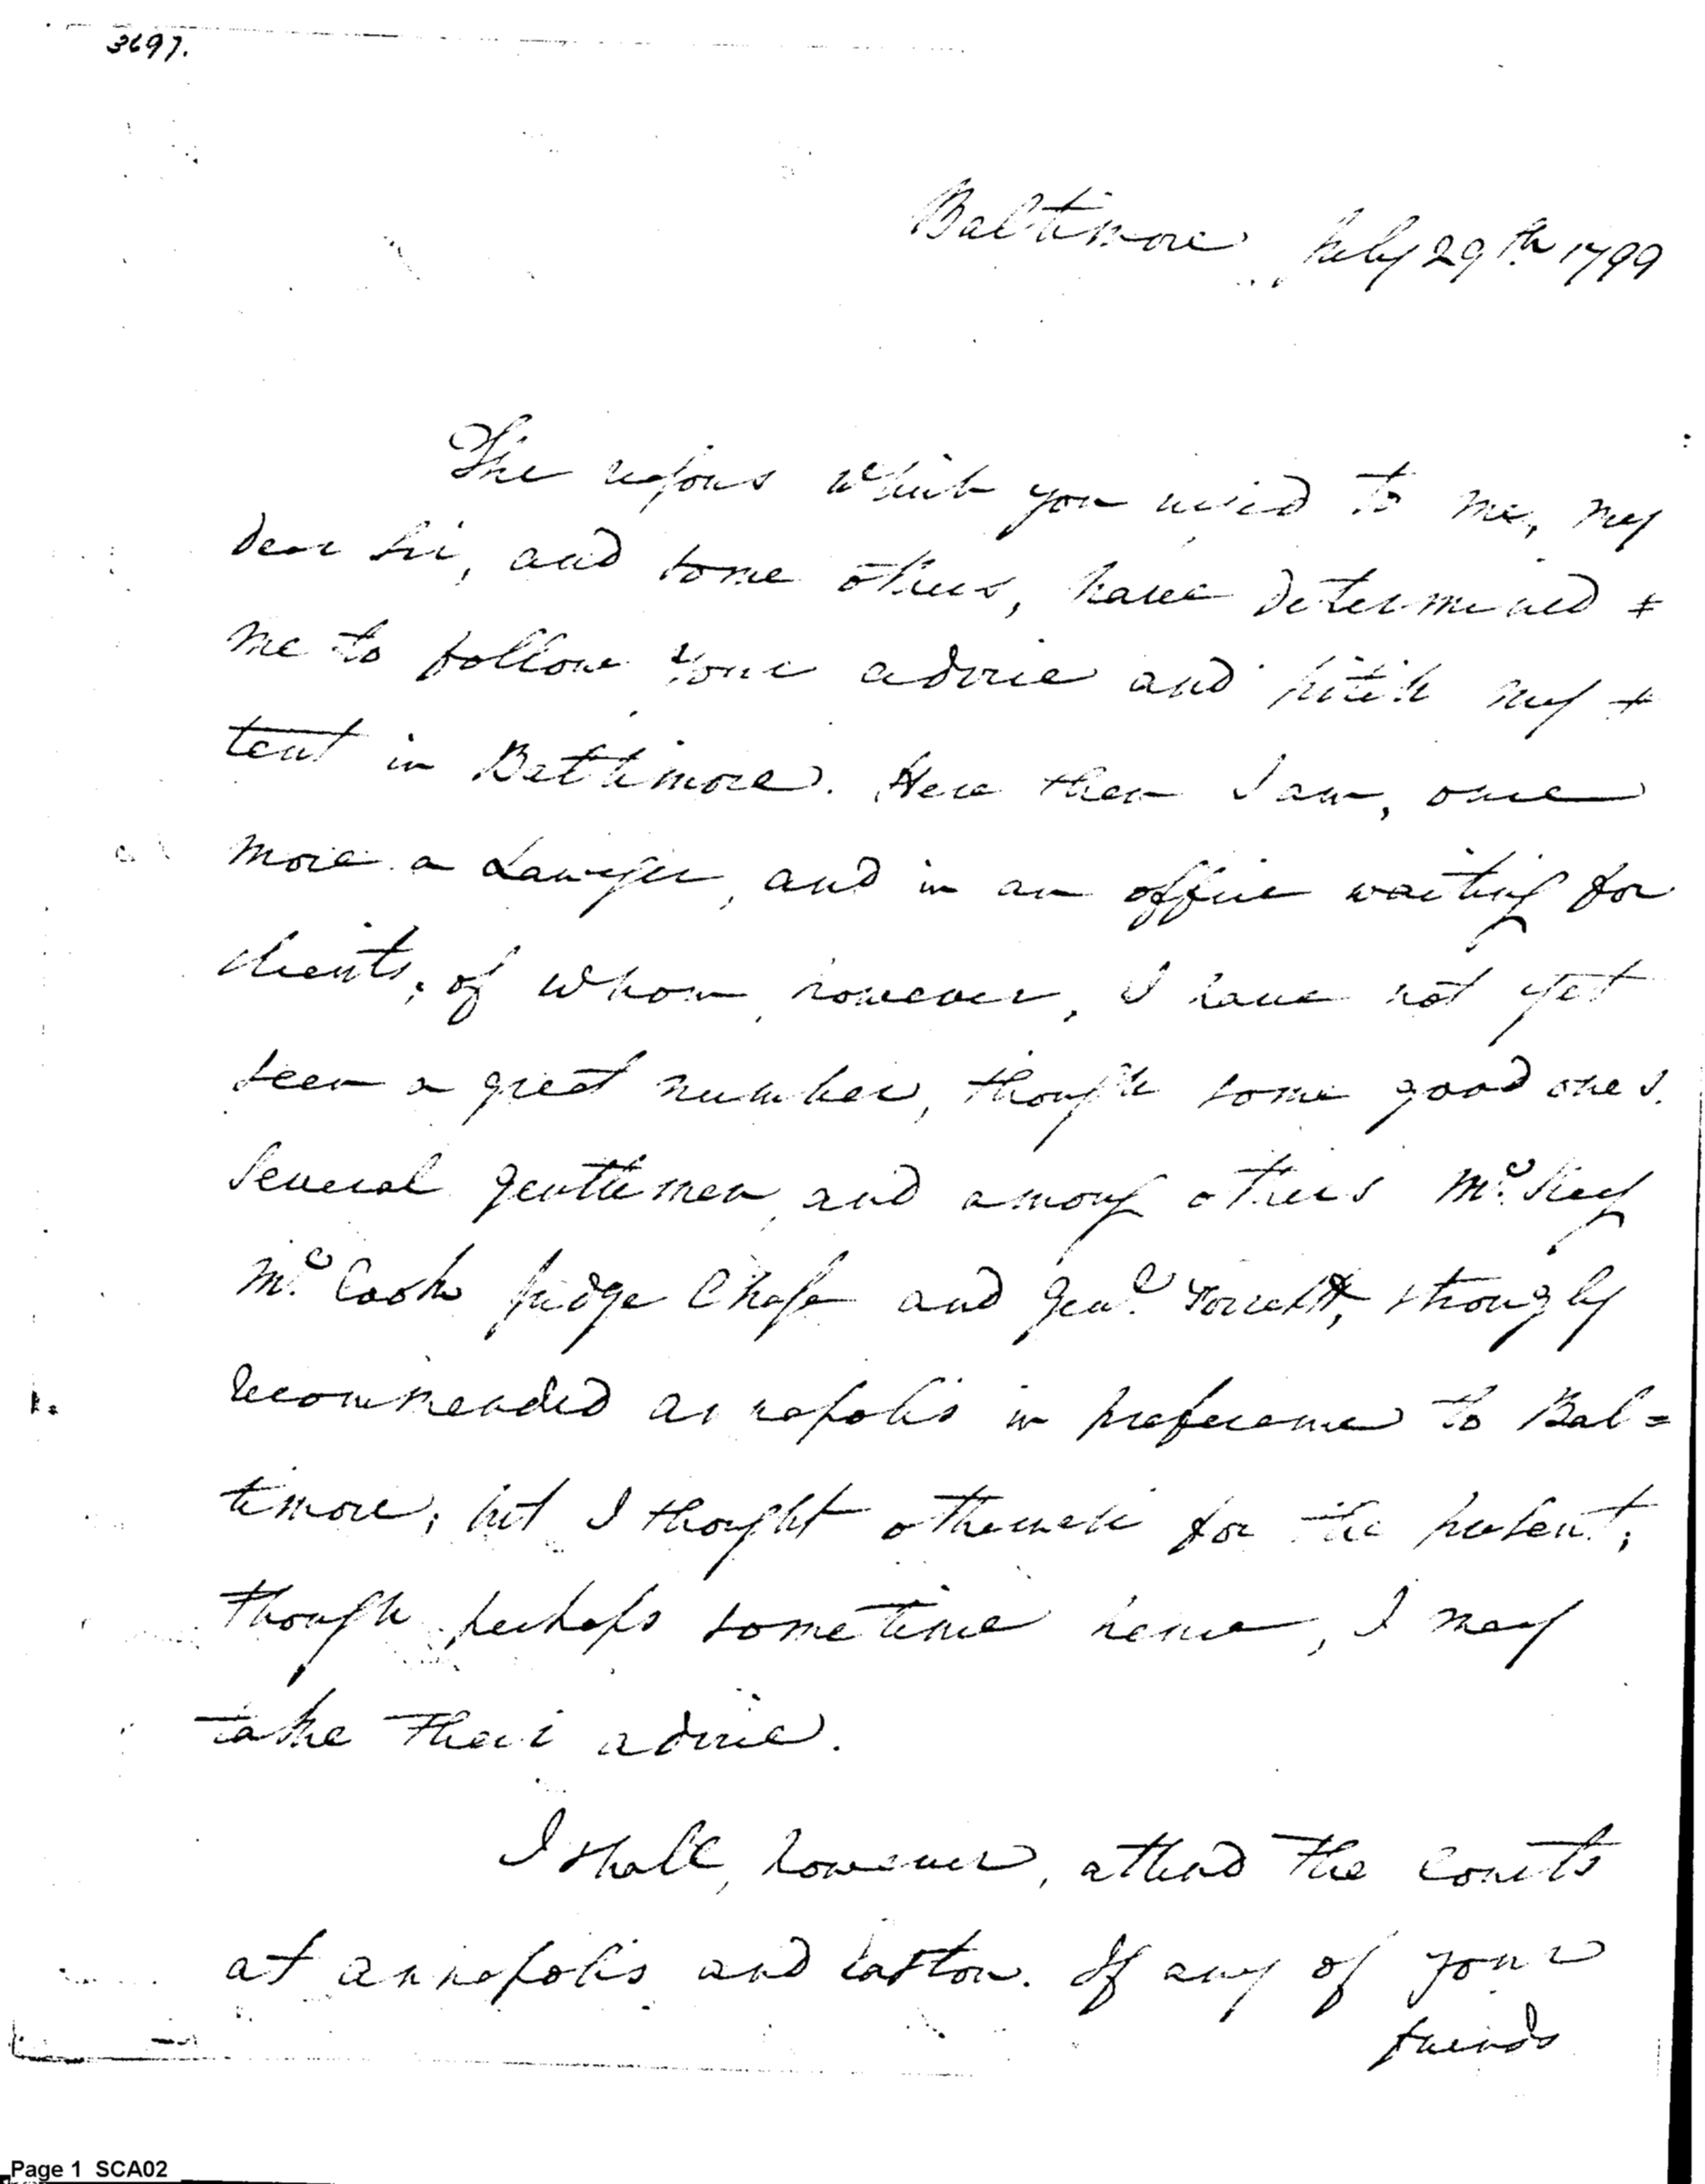 3697.
Baltimore July 29th 1799
The reasons which you used to me, my
dear Sir, and some others, have determined
me to follow your advice and pitch my
tent in Baltimore. Here then I am, once
more a Lawyer, and in an office waiting for
clients, of whom, however, I have not yet
seen a great number, though some good ones.
Several gentlemen, and among others Mr. Key
Mr. Cooke Judge Chase and Genl. strongly
recommended Annapolis in preference to Bal=
timore, but I thought otherwise for the present;
though perhaps sometime hence, I may
take their advice.
I shall, however, attend the courts
at Annapolis and Easton. If any of your
friends
Page 1 SCA02